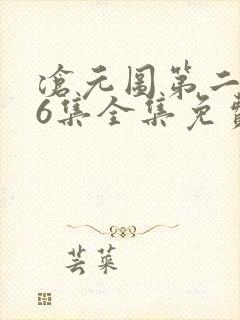 沧元图第二
6集全集免费
芸菜